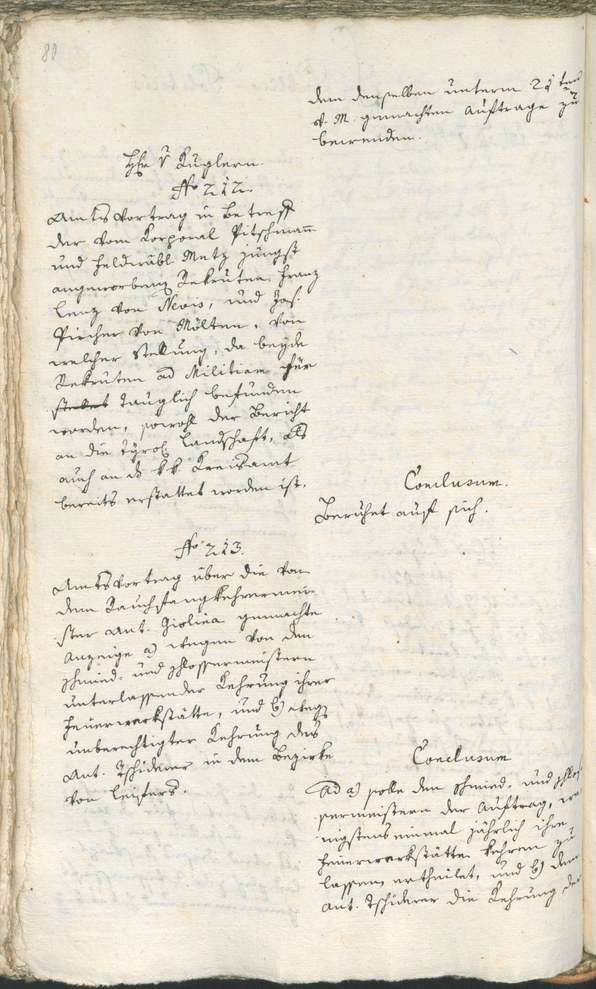 80
dem denselben unterm 21ten
v. M. gemachten Auftrage zu
bewenden.
Hr v Kuglern.
No 212.
Amtsvortrag in Betreff
der vom Korporal Pitschmann
und Feldwäbl Metz jüngst
angeworbenen Rekruten Franz
Lenz von Nevis, und Jos.
Pircher von Mölten, von
welcher Stellung, da beyde
Rekruten ad Militiam für
tauglich befunden
worden, sowohl der Bericht
an die tyrol. Landschaft, als
auch an ds kk. Kreisamt
bereits erstattet worden ist.
Conclusum.
Beruhet auf sich.
No 213.
Amtsvortrag über die von
dem Rauchfangkehrermei-
ster Ant. Giolina gemachte
Anzeige a) wegen von den
Schmied- und Schlossermeistern
unterlassender Kehrung ihrer
Feuerwerkstätte, und b) wegen
unberechtigter Kehrung des
Ant. Tschiderer in dem Bezirke
von Leifers.
Conclusum
Ad a) solle den Schmied- und Schlos-
sermeistern der Auftrag, we-
nigstens einmal jährlich ihre
Feuerwerkstätte kehren zu
lassen, ertheilet, und b) dem
Ant. Tschiderer die Kehrung der